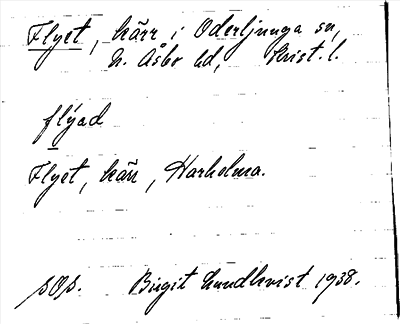 Flyet, kärr i Oderljunga sn,
N. Åsbo hd, Krist. l.
flýad
Flyet, kärr, Harholma.
sOs. Birgit Lundkvist 1938.